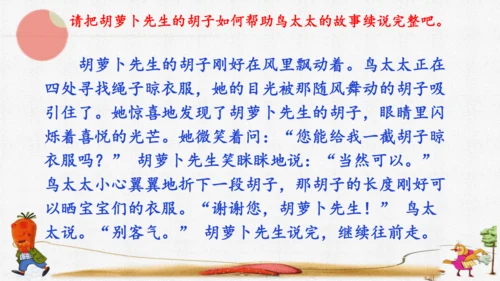 请把胡萝卜先生的胡子如何帮助鸟太太的故事续说完整吧。
胡萝卜先生的胡子刚好在风里飘动着。鸟太太正在
四处寻找绳子晾衣服，她的目光被那随风舞动的胡子吸
引住了。她惊喜地发现了胡萝卜先生的胡子，眼睛里闪
烁着喜悦的光芒。她微笑着问：“您能给我一截胡子晾
衣服吗？” 胡萝卜先生笑眯眯地说：“当然可以。”
鸟太太小心翼翼地折下一段胡子，那胡子的长度刚好可
以晒宝宝们的衣服。“谢谢您，胡萝卜先生！” 鸟太
太说。“别客气。” 胡萝卜先生说完，继续往前走。